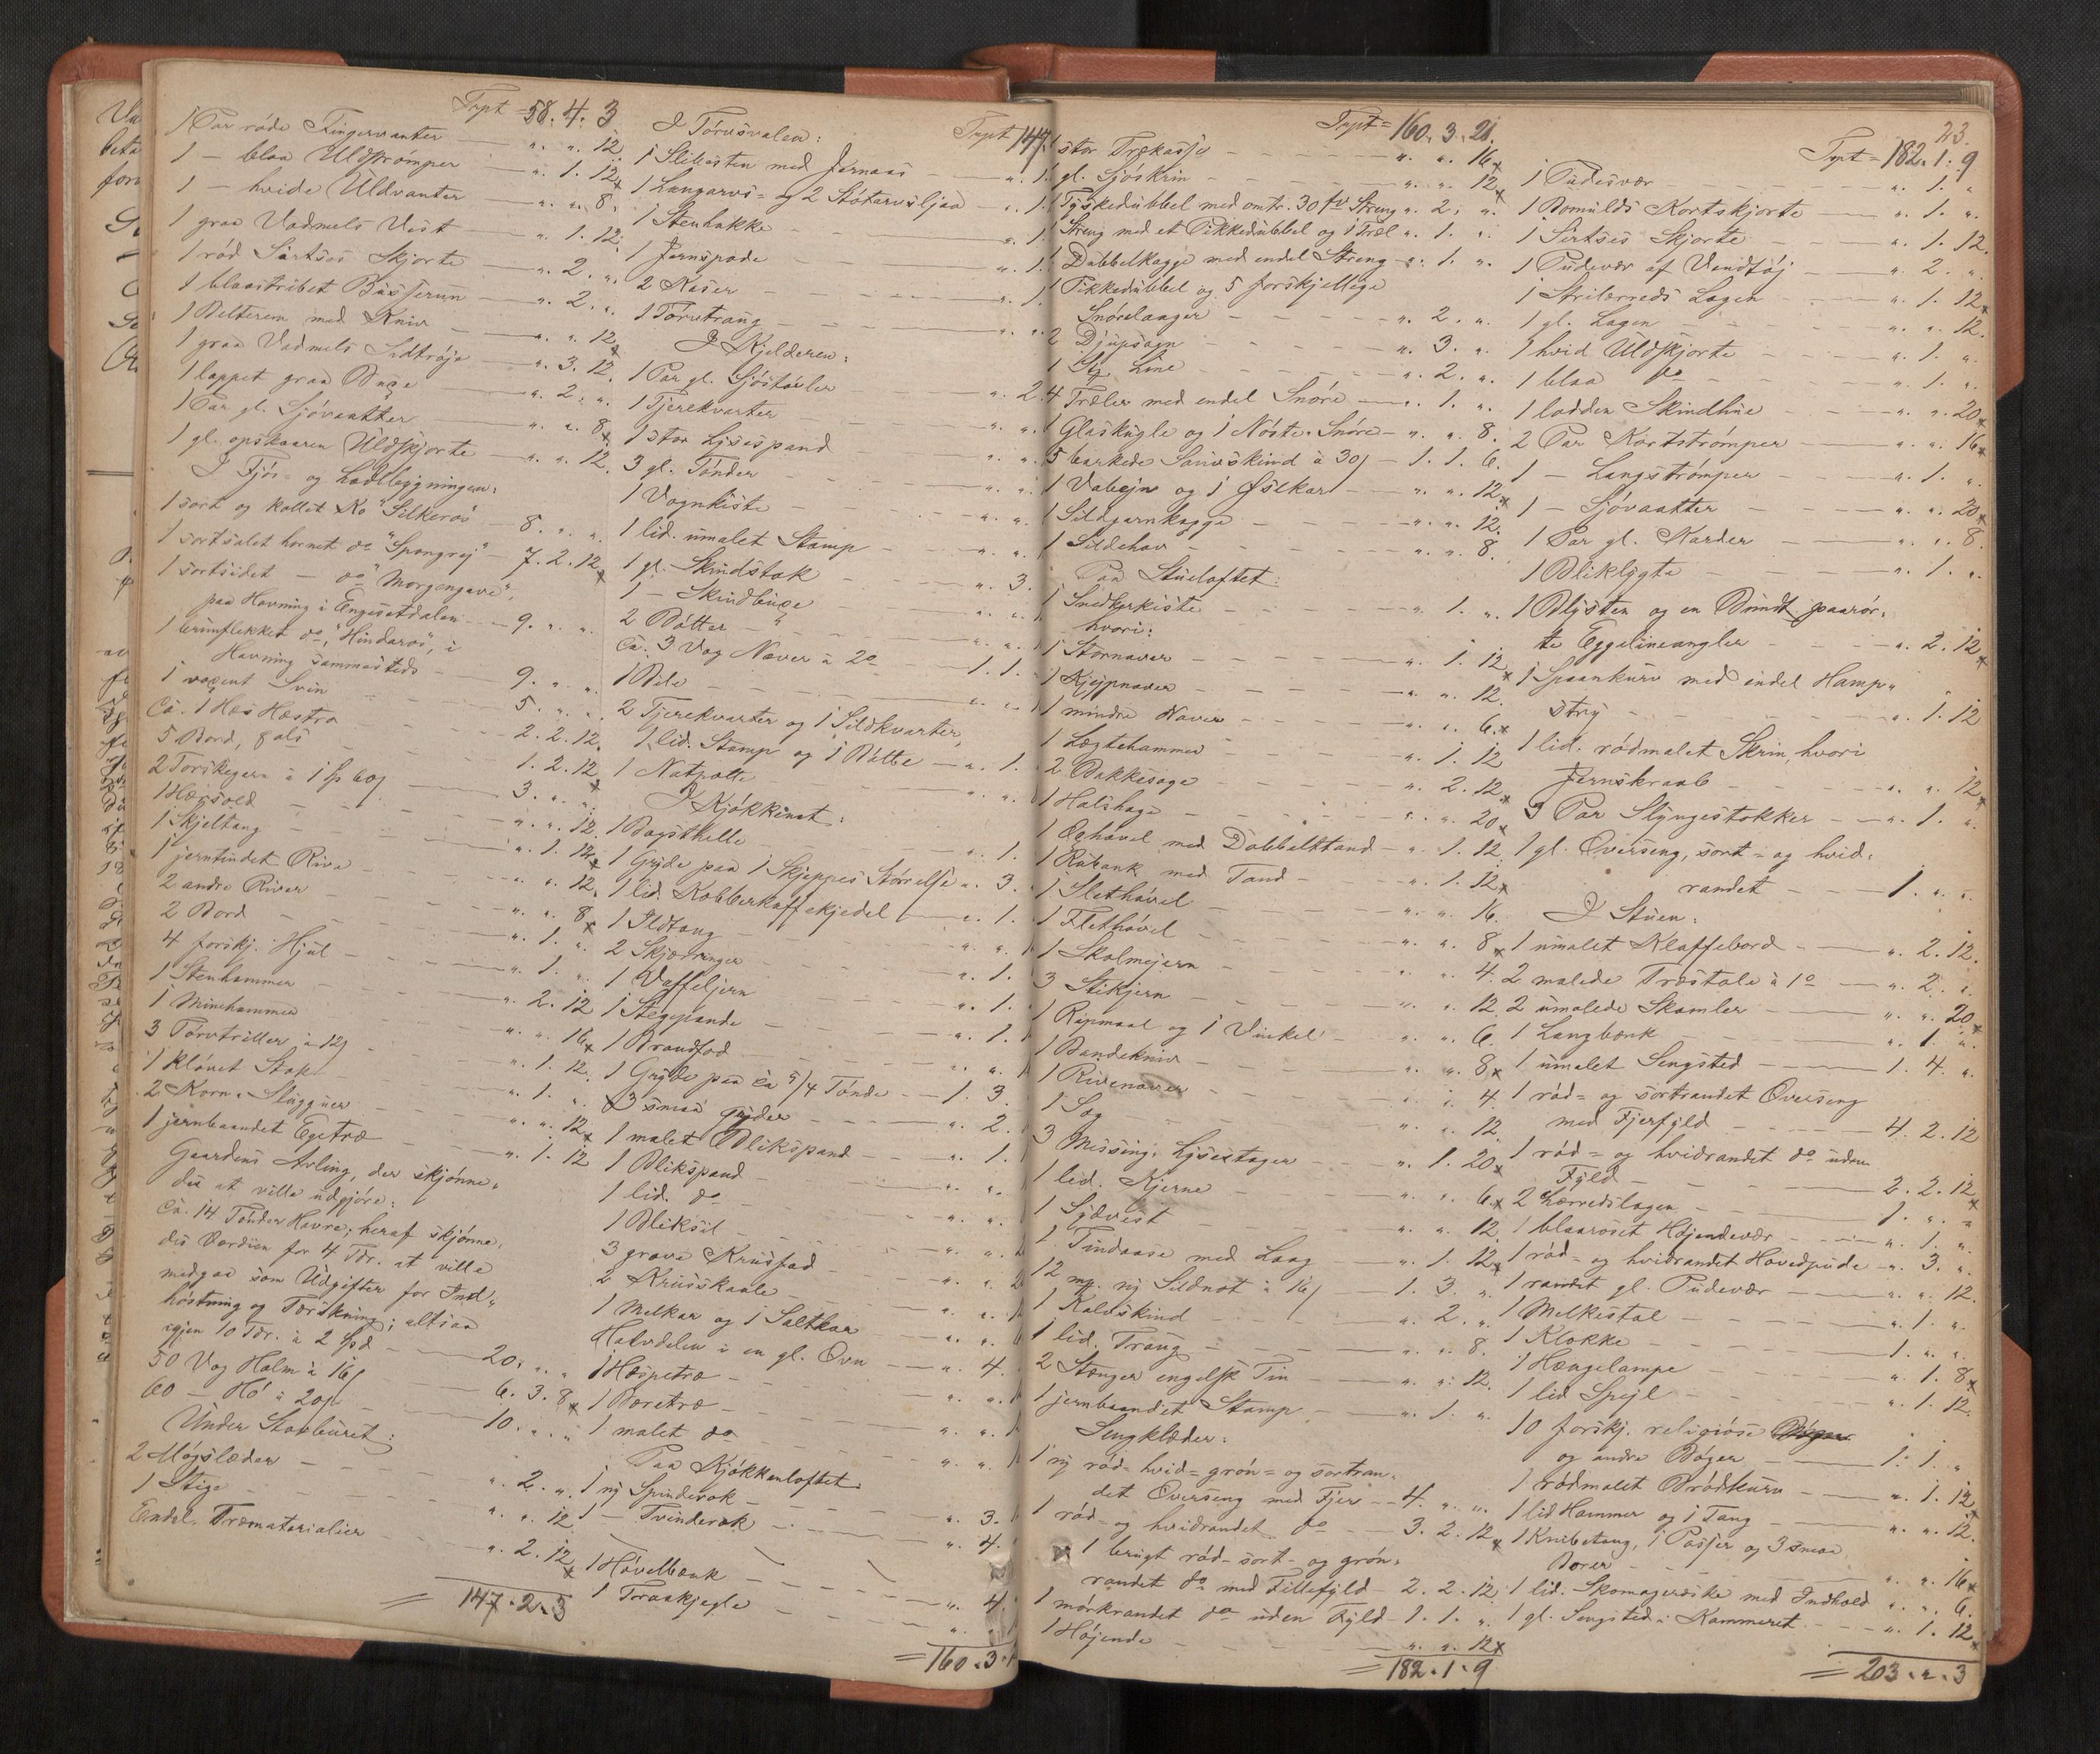 Trpt = 58. 4. 3
1 Par röde Fingervanter — „. „. 12
1 — blaa Uldströmper — „. 1. 12
1 — hvide Uldvanter — „. „. 8.
1 graa Vadmels Vest — „. 1. 12.
1 röd Sirtses Skjorte — „. 2. „.
1 blaastribet Busserun — „. 2. „.
1 Belterem med Kniv — „. „. 12
1 graa Vadmels Sidtröje — „. 3. 12.
1 lappet graa Buxe — „. 2. „.
1 Par gl. Sjövaatter — „. „. 8
1 gl. opskaaren Uldskjorte — „. „. 12.
I Fjös- og Ladebygningen:
1 sort og kollet Ko "Silkeros" — 8. „. „.
1 sortsidet hornet do "Sprangrej" — 7. 2. 12.
1 sortsidet — do "Morgengave",
paa Havning i Engesetdalen — 9. „. „.
1 brunflekket do, "Hindaros", i
Havning sammesteds — 9. „. „.
1 voxent Svin — 5. „. „.
Ca. 1 Hes Hæstra — 2. 2. 12.
5 Bord, 8 als — 1. 2. 12
2 Torskegarn à 1 Sp 60/ — 3. „. „.
1 Hærsold — „. „. 12.
1 Skjeltang — „. 1. 12.
1 jerntindet Rive — „. „. 12.
2 andre River — „. „. 8
2 Bord — „. 1. „.
4 forskj. Hjul — „. 1. „.
1 Stenhammer — „. 2. 12
1 Minehammer — „. „. 16
3 Törvtriller à 12/ — „. 1. 12.
1 klövet Stok — „. 1. „.
2 Korn-Stugguer — „. „. 12
1 jernbaandet Egetræ — „. 1. 12
Gaardens Avling, der skjönne-
des at ville udgjöre:
Ca. 14 Tönder Havre; heraf skjönne-
des Værdien for 4 Tdr. at ville
medgaa som Udgifter for Ind-
höstning og Tærskning; altsaa
igjen 10 Tdr. à 2 Spd — 20. „. „.
50 Vog Halm à 16/ — 6. 3. 8
60 — Hö à 20/ — 10. „. „.
Under Stabburet:
2 Mögslæder — „. 2. „.
1 Stige — „. „. 12
Endel Træmaterialier — „. 2. 12
= 147. 2. 3
I Törvsvalen: Trpt 147.
1 Slibesten med Jernaas — „. 1.
1 Langarvs- og 2 Stötarvsljaa — „. 1.
1 Stenhakke — „. 1.
1 Jernspade — „. 1.
2 Naser — „. 1.
1 Törvtraug — „. „.
I Kjelderen:
1 Par gl. Sjöstövler — „. 2.
1 Tjerekvarter — „. „.
1 stor Lysespand — „. „.
3 gl. Tönder — „. „.
1 Vognkiste — „. „.
1 lid. umalet Stamp — „. „.
1 gl. Skindstak — „. 3.
1 — Skindbuxe — „. „.
2 Bötter — „. „.
Ca. 3 Vog Næver à 2o — 1. 1.
1 Bile — „. „.
2 Tjerekvarter og 1 Sildkvarter,
1 lid. Stamp og 1 Bötte — „. 1.
1 Natpotte — „. „.
I Kjökkenet:
1 Bagsthelle — „. 1.
1 Gryde paa 1 Skjeppes Störrelse „. 3.
1 lid. Kobberkaffekjedel — „. 1.
1 Ildtang — „. „.
2 Skjærringer — „. 1.
1 Vaffeljern — „. 1.
1 Stegepande — „. 1.
1 Brandfad — „. „.
1 Gryde paa ca 5/4 Tönde — 1. 3.
3 smaa gryder — „. 2.
1 malet Blikspand — „. 1.
1 Blikspand — „. „.
1 lid. do — „. „.
1 Bliksil — „. „.
3 grove Krusfad — „. „.
2 Krusskaale — „. „.
1 Melkar og 1 Saltkar — „. „.
Halvdelen i en gl. Ovn — „. 4.
1 Hæspetræ — „. „.
1 Bæretræ — „. „.
1 malet do — „. „.
Paa Kjökkenloftet:
1 ny Spinderok — „. 3.
1 — Tvinderok — „. 4.
1 Hövelbænk — „. 4
1 Toraakjegle — „. „.
= 160. 3.
Trpt = 160. 3. 21.
1 stor Trækasse — „. „. 16
1 gl. Sjöskrin — „. „. 12
1 Tyskedubbel med omtr. 30 fv Streng „. 2. „.
1 Streng med et Pikkedubbel og 1 Træl „. 1. „.
1 Dubbelkagge med endel Streng „. 1. „.
1 Pikkedubbel og 5 forskjellige
Snörelaager — „. 2. „.
2 Djupsagn — „. 3. „.
1 Line — „. 2. „.
4 Træler med endel Snöre — „. 1. „.
1 Glaskugle og 1 Nöste Snöre — „. „. 8.
5 barkede Saueskind à 30/ — 1. 1. 6.
1 Vabejn og 1 Öskar — „. „. 12
1 Sildgarnkagge — „. „. 12
1 Sildehav — „. „. 8
Paa Stueloftet:
1 Snedkerkiste — „. 1. „.
hvori:
1 Stornaver — „. 1. 12
1 Kjejpnaver — „. „. 12.
1 mindre Naver — „. „. 6.
1 Lægtehammer — „. 1. 12
2 Bakkesage — „. 2. 12
1 Halshage — „. „. 20
1 Oghövel med Dobbelttand — „. 1. 12
1 Rubank med Tand — „. 1. 12
1 Slethövel — „. „. 16.
1 Flethövel — „. „. 8
1 Skolmejern — „. „. 4
3 Stikjern — „. „. 12
1 Ripmaal og 1 Vinkel — „. „. 6.
1 Bandekniv — „. „. 8
1 Rivenaver — „. „. 4
1 Sag — „. „. 12
3 Messing-Lysestager — „. 1. 20
1 lid. Kjerne — „. „. 6
1 Sydvest — „. „. 12
1 Tindaase med Laag — „. 1. 12
12 mg. ny Sildnot à 16/ — 1. 3. „.
1 Kalvskind — „. 2. „.
1 lid. Traug — „. „. 8.
2 Stænger engelsk Tin — „. „. 12.
1 jernbaandet Stamp — „. 1. „.
Sengklæder:
1 ny röd- hvid- grön- og sortran-
det Overseng med Fjer — 4. „. „.
1 röd- og hvidrandet do — 3. 2. 12
1 brugt röd- sort- og grön-
randet do med Fillefyld — 2. 2. 12
1 mörkrandet do uden Fyld — 1. 1. „.
1 Höjende — „. „. 12
= 182. 1. 9
23.
Trpt = 182. 1. 9
1 Pudesvær — „. 1. „
1 Bomulds Kortskjorte — „. 1. „.
1 Sirtses Skjorte — „. 1. 12.
1 Pudevær af Vendtöj — „. 2. „.
1 Strilærreds Lagen — „. 1. 12
1 gl. Lagen — „. „. 12.
1 hvid Uldskjorte — „. 1. „.
1 blaa do — „. 1. „.
1 lodden Skindhue — „. „. 20
2 Par Kortströmper — „. „. 16
1 — Langströmper — „. 1. „.
1 — Sjövaatter — „. „. 20
1 Par gl. Karder — „. „. 8
1 Bliklygte — „. 1. „.
1 Blysten og en Bundt paarör-
te Eggelineangler — „. 2. 12
1 Spaankurv med endel Hamp-
stry — „. 1. 12
1 lid. rödmalet Skrin, hvori
Jernskraab — „. „. 12
3 Par Slyngestokker — „. 1. „.
1 gl. Overseng, sort- og hvid-
randet — 1. „. „.
I Stuen:
1 umalet Klaffebord — „. 2. 12.
2 malede Træstole à 1o — „. 2. „.
2 umalede Skamler — „. „. 20
1 Langbænk — „. 1. „.
1 umalet Sengsted — 1. 4. „.
1 röd- og sortrandet Overseng
med Fjerfyld — 4. 2. 12
1 röd- og hvidrandet do uden
Fyld — 2. 2. 12
2 Lærredslagen — 1. „. „
1 blaaröset Höjendevær — „. 1. „.
1 röd- og hvidrandet Hovedpude „. 3. „.
1 randet gl. Pudevær — „. „. 12.
1 Melkestol — „. 1. „.
1 Klokke — 1. „. „.
1 Hængelampe — „. 1. 8
1 lid Spejl — „. 1. 12.
10 forskj. religiöse Böger
og andre Böger — 1. 1. „
1 rödmalet Brödkurv — „. 1. 12
1 lid Hammer og 1 Tang — „. „. 12.
1 Knibetang, 1 Passer og 3 smaa
Borer — „. „. 16
1 lid. Skomageræske med Indhold „. „. 6.
1 gl. Sengsted i Kammeret — „. 1. 12
= 203. „. 3